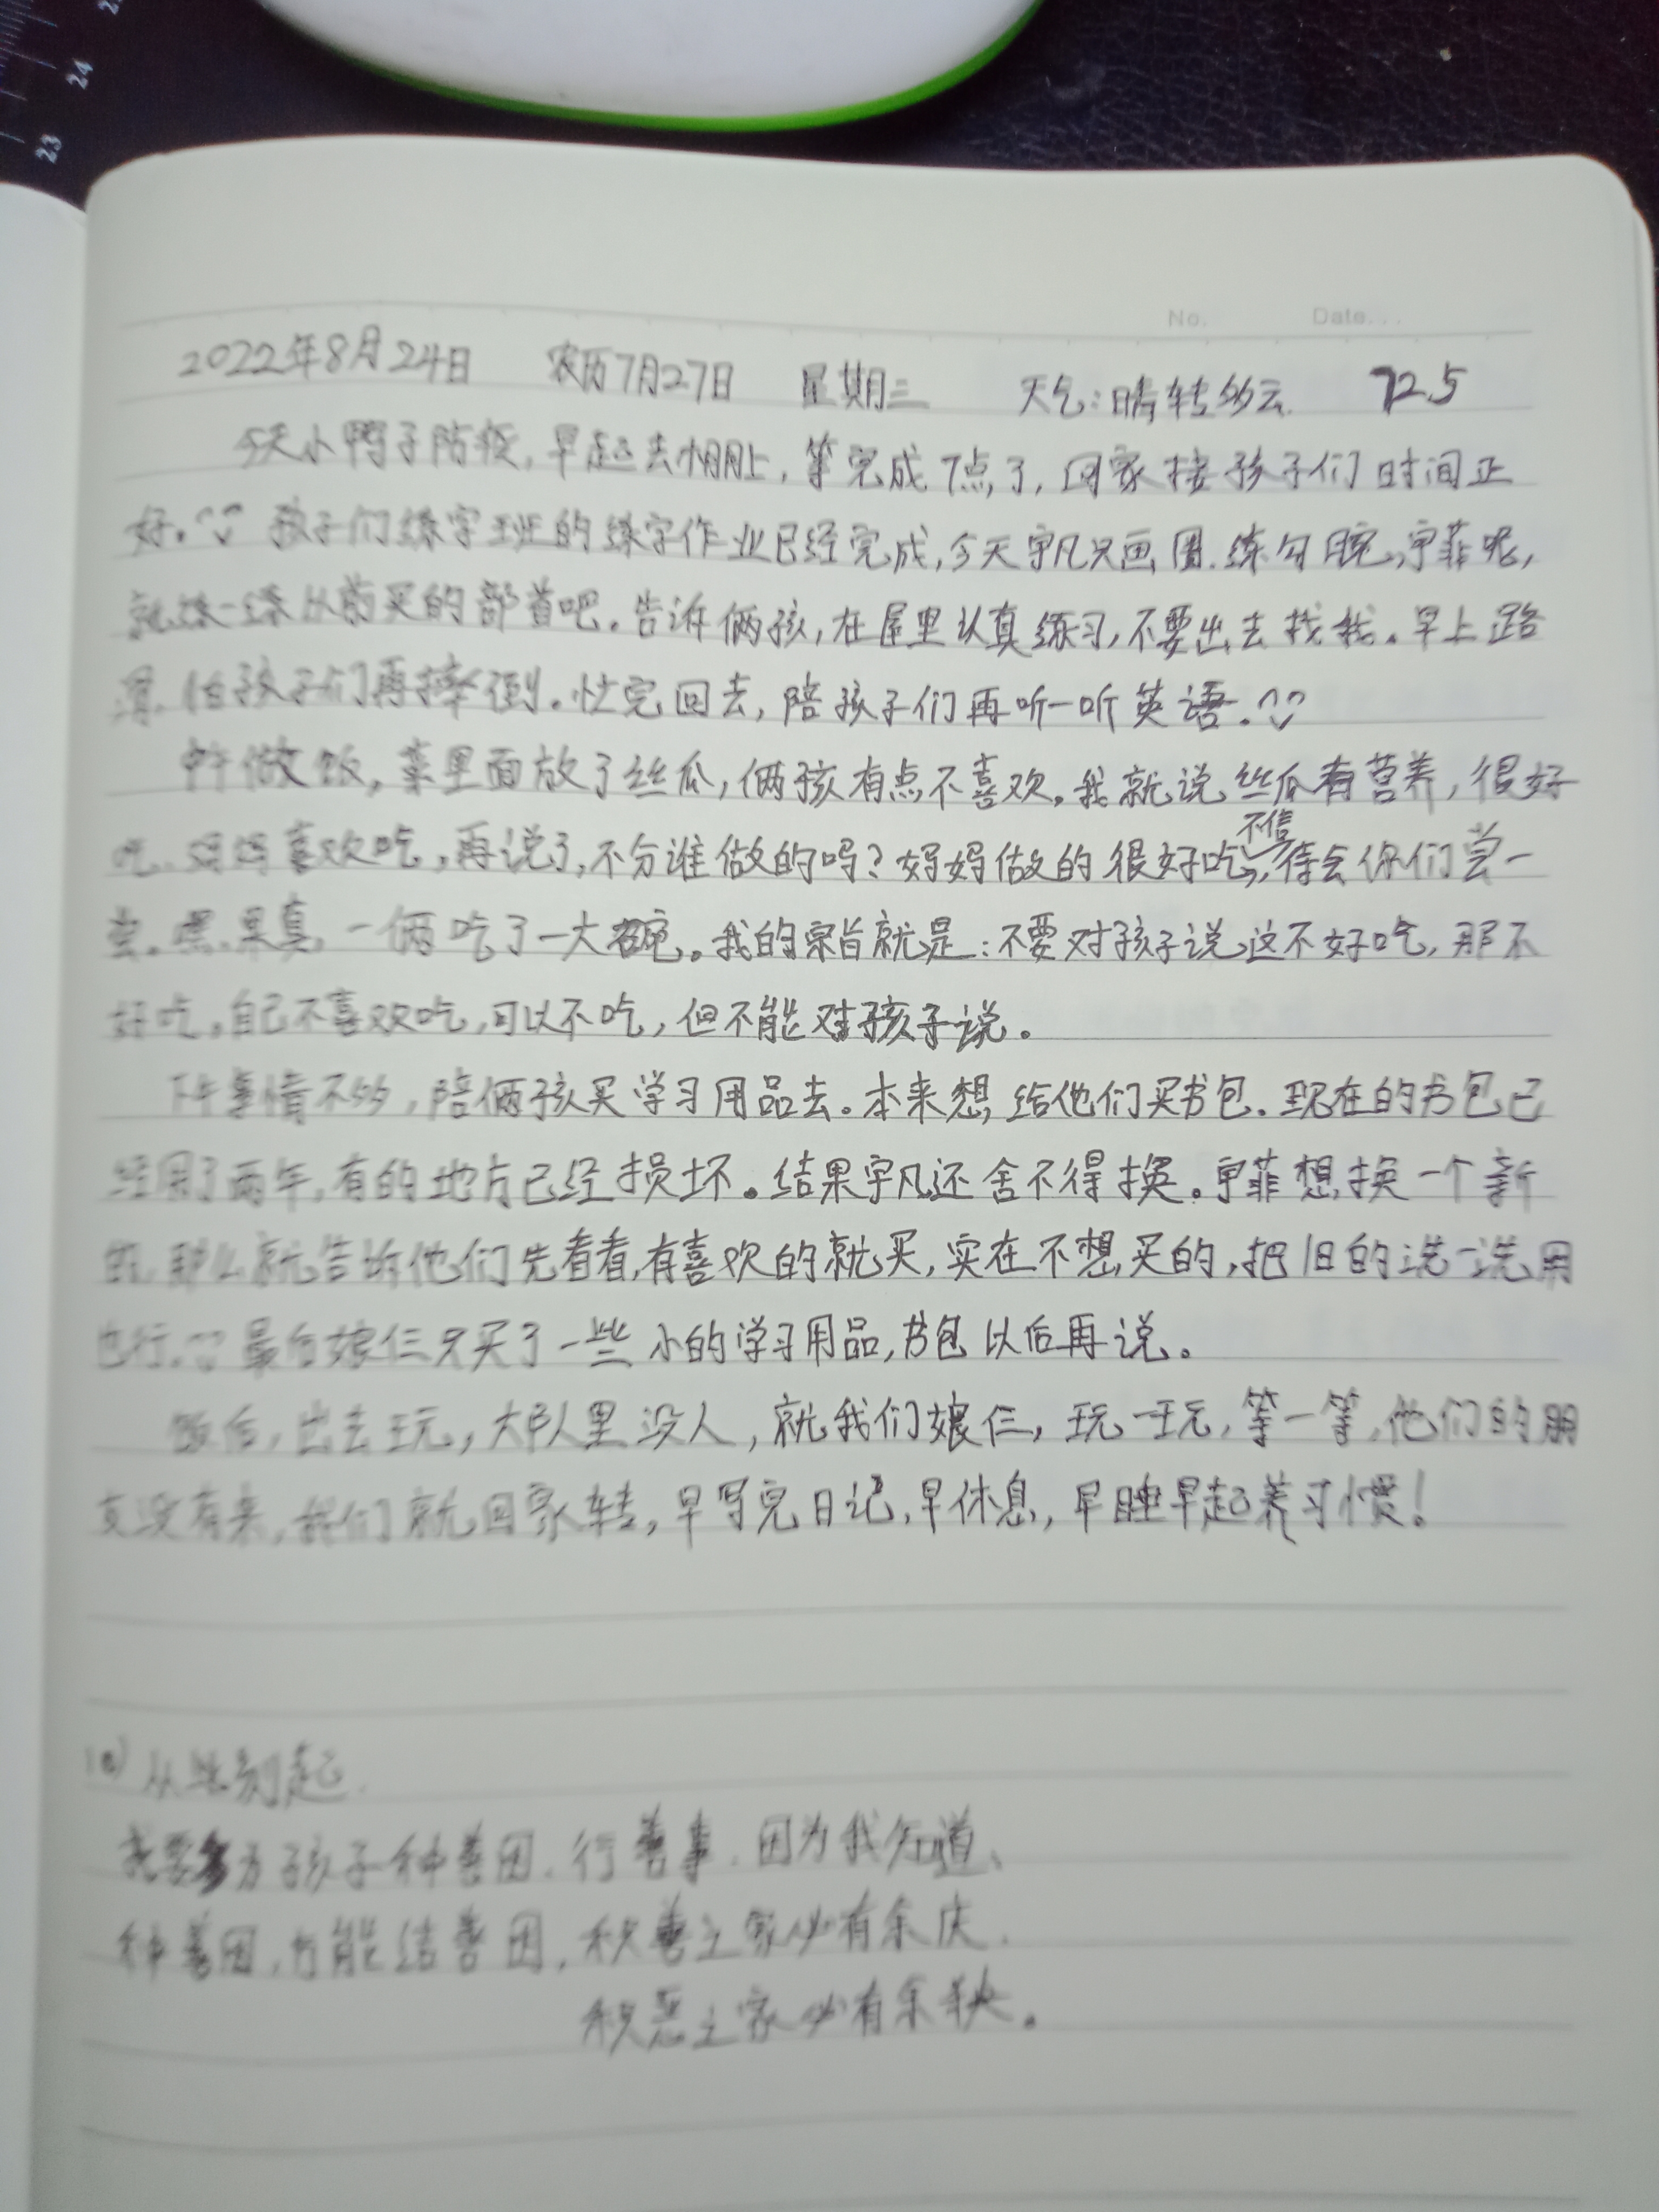 24
23
No. Date...
2022年8月24日 农历7月27日 星期三 天气:晴转多云 72.5
今天小鸭子防疫,早起去帮上,等完成7点了,回家接孩子们时间正
好。孩子们练字班的练字作业已经完成,今天宇凡只画圈.练勾腕,宇菲呢,
就练一练从前买的部首吧。告诉俩孩,在屋里认真练习,不要出去找我。早上路
滑,怕孩子们再摔倒。忙完回去,陪孩子们再听一听英语。
中午做饭,菜里面放了丝瓜,俩孩有点不喜欢。我就说丝瓜有营养,很好
吃、妈妈喜欢吃,再说了,不分谁做的吗?妈妈做的很好吃,不信待会你们尝一
尝。嘿,果真,一俩吃了一大碗。我的宗旨就是:不要对孩子说这不好吃,那不
好吃。自己不喜欢吃,可以不吃,但不能对孩子说。
下午事情不多,陪俩孩买学习用品去。本来想给他们买书包.现在的书包已
经用了两年,有的地方已经损坏。结果宇凡还舍不得换。宇菲想换一个新
的,那么就告诉他们先看看,有喜欢的就买,实在不想买的,把旧的洗一洗用
也行。最后娘仨只买了一些小的学习用品,书包以后再说。
饭后,出去玩,大队里没人,就我们娘仨,玩一玩,等一等,他们的朋
友没有来,我们就回家转,早写完日记,早休息,早睡早起养习惯!
从此刻起
我要多为孩子种善因.行善事.因为我知道、
种善因,方能结善因,积善之家必有余庆.
积恶之家必有余殃。